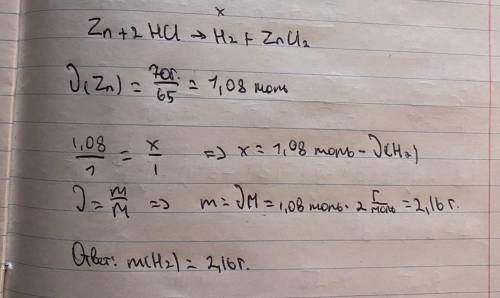 x
Zn + 2HCl → H₂ + ZnCl₂
ν(Zn) = 70г. / 65 = 1,08 моль
1,08 / 1 = x / 1 => x = 1,08 моль - ν(H₂)
ν = m / M => m = νM = 1,08 моль · 2 г/моль = 2,16 г.
Ответ: m(H₂) = 2,16 г.